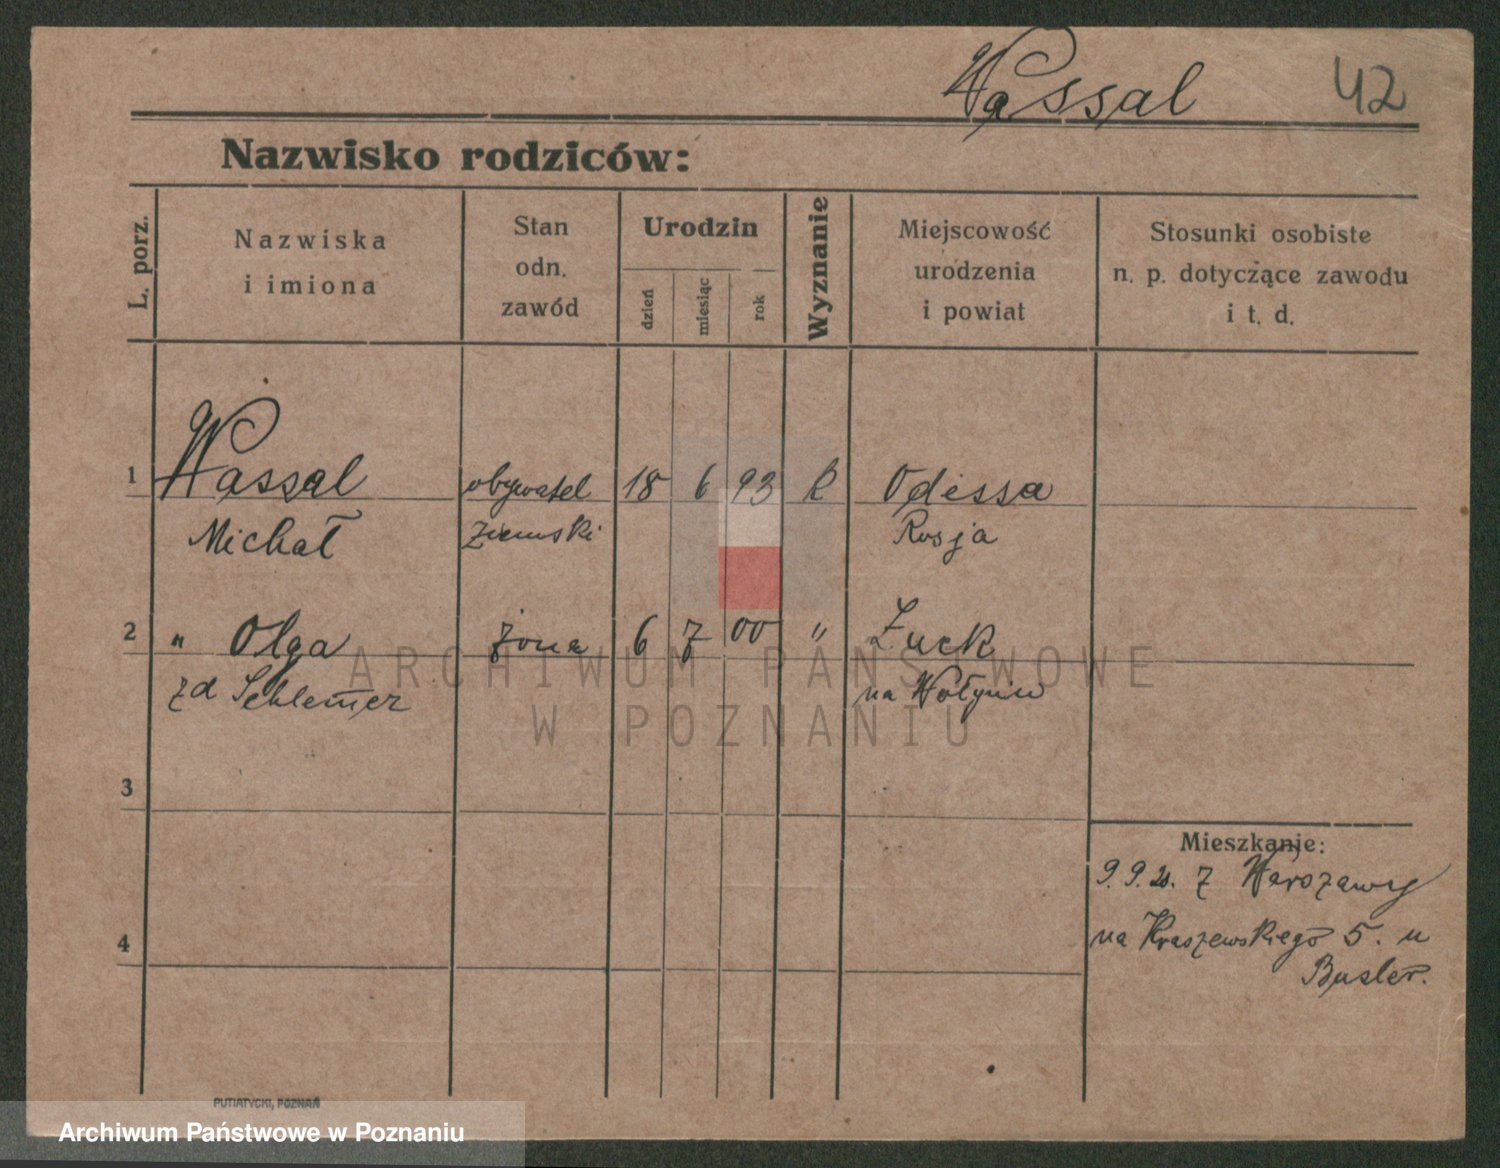 Wassal 42
Nazwisko rodziców:
L. porz.
Nazwiska
i imiona
Stan
odn.
zawód
Urodzin
dzień
miesiąc
rok
Wyznanie
Miejscowość
urodzenia
i powiat
Stosunki osobiste
n. p. dotyczące zawodu
i t. d.
1 Wassal obywatel 18 6 93 R Odessa
Michał ziemski Rosja
2 " Olga żona 6 7 00 " Łuck
zd Schlemmer na Wołyniu
ARCHIWUM PAŃSTWOWE
W POZNANIU
3
Mieszkanie:
9.9.20. z Warszawy
4 na Kraszewskiego 5. u
Basler.
PUTIATYCKI, POZNAŃ
Archiwum Państwowe w Poznaniu